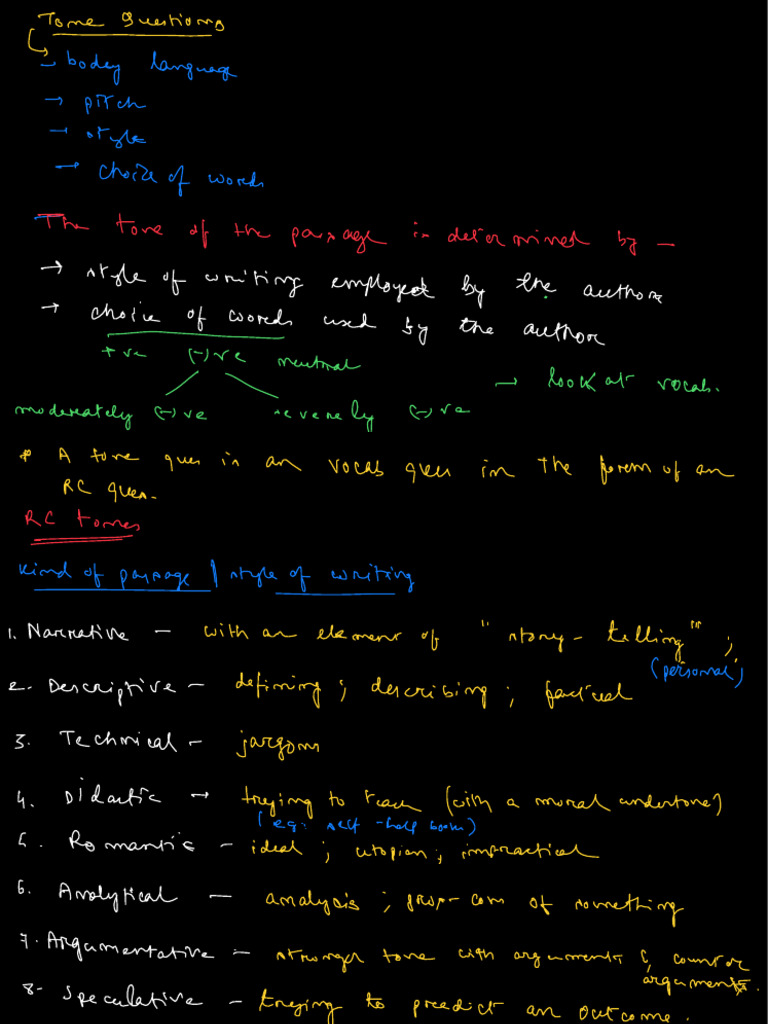 Tone Questions
→ body language
→ pitch
→ style
→ choice of words
The tone of the passage is determined by —
→ style of writing employed by the author
→ choice of words used by the author
+ve (-)ve neutral
→ look at vocab.
moderately (-)ve severely (-)ve
* A tone ques is an vocab ques in the form of an
RC ques.
RC tones
kind of passage / style of writing
1. Narrative — with an element of "story-telling" ;
(personal)
2. Descriptive — defining ; describing ; factual
3. Technical — jargons
4. Didactic → trying to teach (with a moral undertone)
(eg: self-help books)
5. Romantic — ideal ; utopian ; impractical
6. Analytical — analysis ; pros-cons of something
7. Argumentative — stronger tone with arguments & counter
arguments.
8- Speculative — trying to predict an outcome.